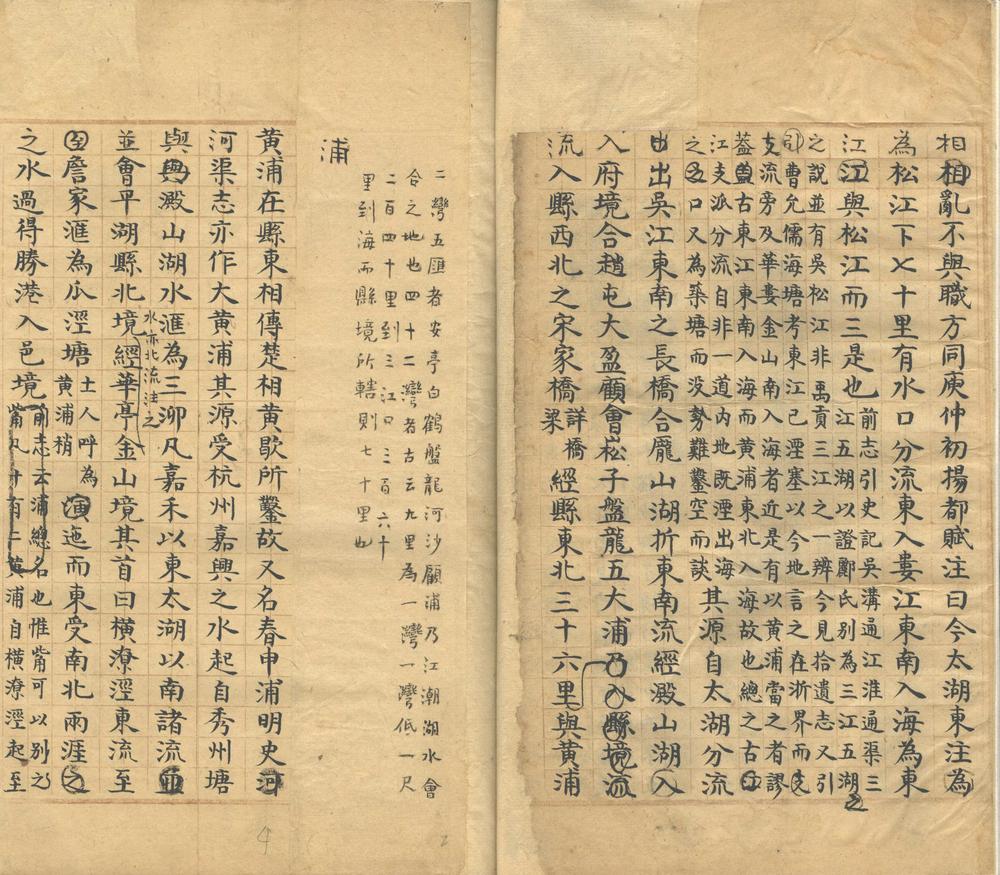 相相亂不與職方同庚仲初揚都賦注曰今太湖東注為
為松江下七十里有水口分流東入婁江東南入海為東
江江與松江而三是也前志引史記吳溝通江淮通渠三
江五湖以證鄭氏別為三江五湖之
之說並有吳松江非禹貢三江之一辨今見拾遺志又引
引曹允儒海塘考東江已湮塞以今地言之在浙界而支
支流旁及華婁金山南入海者近是有以黃浦當之者謬
蓋蓋古東江東南入海而黃浦東北入海故也總之古口
江支派分流自非一道內地既湮出海
之五口又為築塘而沒勢難鑿空而談其源自太湖分流
出出吳江東南之長橋合龐山湖折東南流經澱山湖入
入府境合趙屯大盈顧會崧子盤龍五大浦乃入縣境流
流入縣西北之宋家橋詳橋梁經縣東北三十六里與黃浦
二灣五匯者安亭白鶴盤龍河沙顧浦乃江潮湖水會
合之地也四十二灣者古云九里為一灣一灣低一尺
二百四十里到三江口三百六十
里到海而縣境所轄則七十里也
浦
黃浦在縣東相傳楚相黃歇所鑿故又名春申浦明史河
河渠志亦作大黃浦其源受杭州嘉興之水起自秀州塘
與與澱山湖水滙為三泖凡嘉禾以東太湖以南諸流並
並會平湖縣北境水北亦北流注之經華亭金山境其首曰橫潦涇東流至
至詹家滙為瓜涇塘土人呼為黃浦梢演迤而東受南北兩涯之
之水過得勝港入邑境前志云浦總名也惟觜可以別之
觜凡十有二黃浦自橫潦涇起至